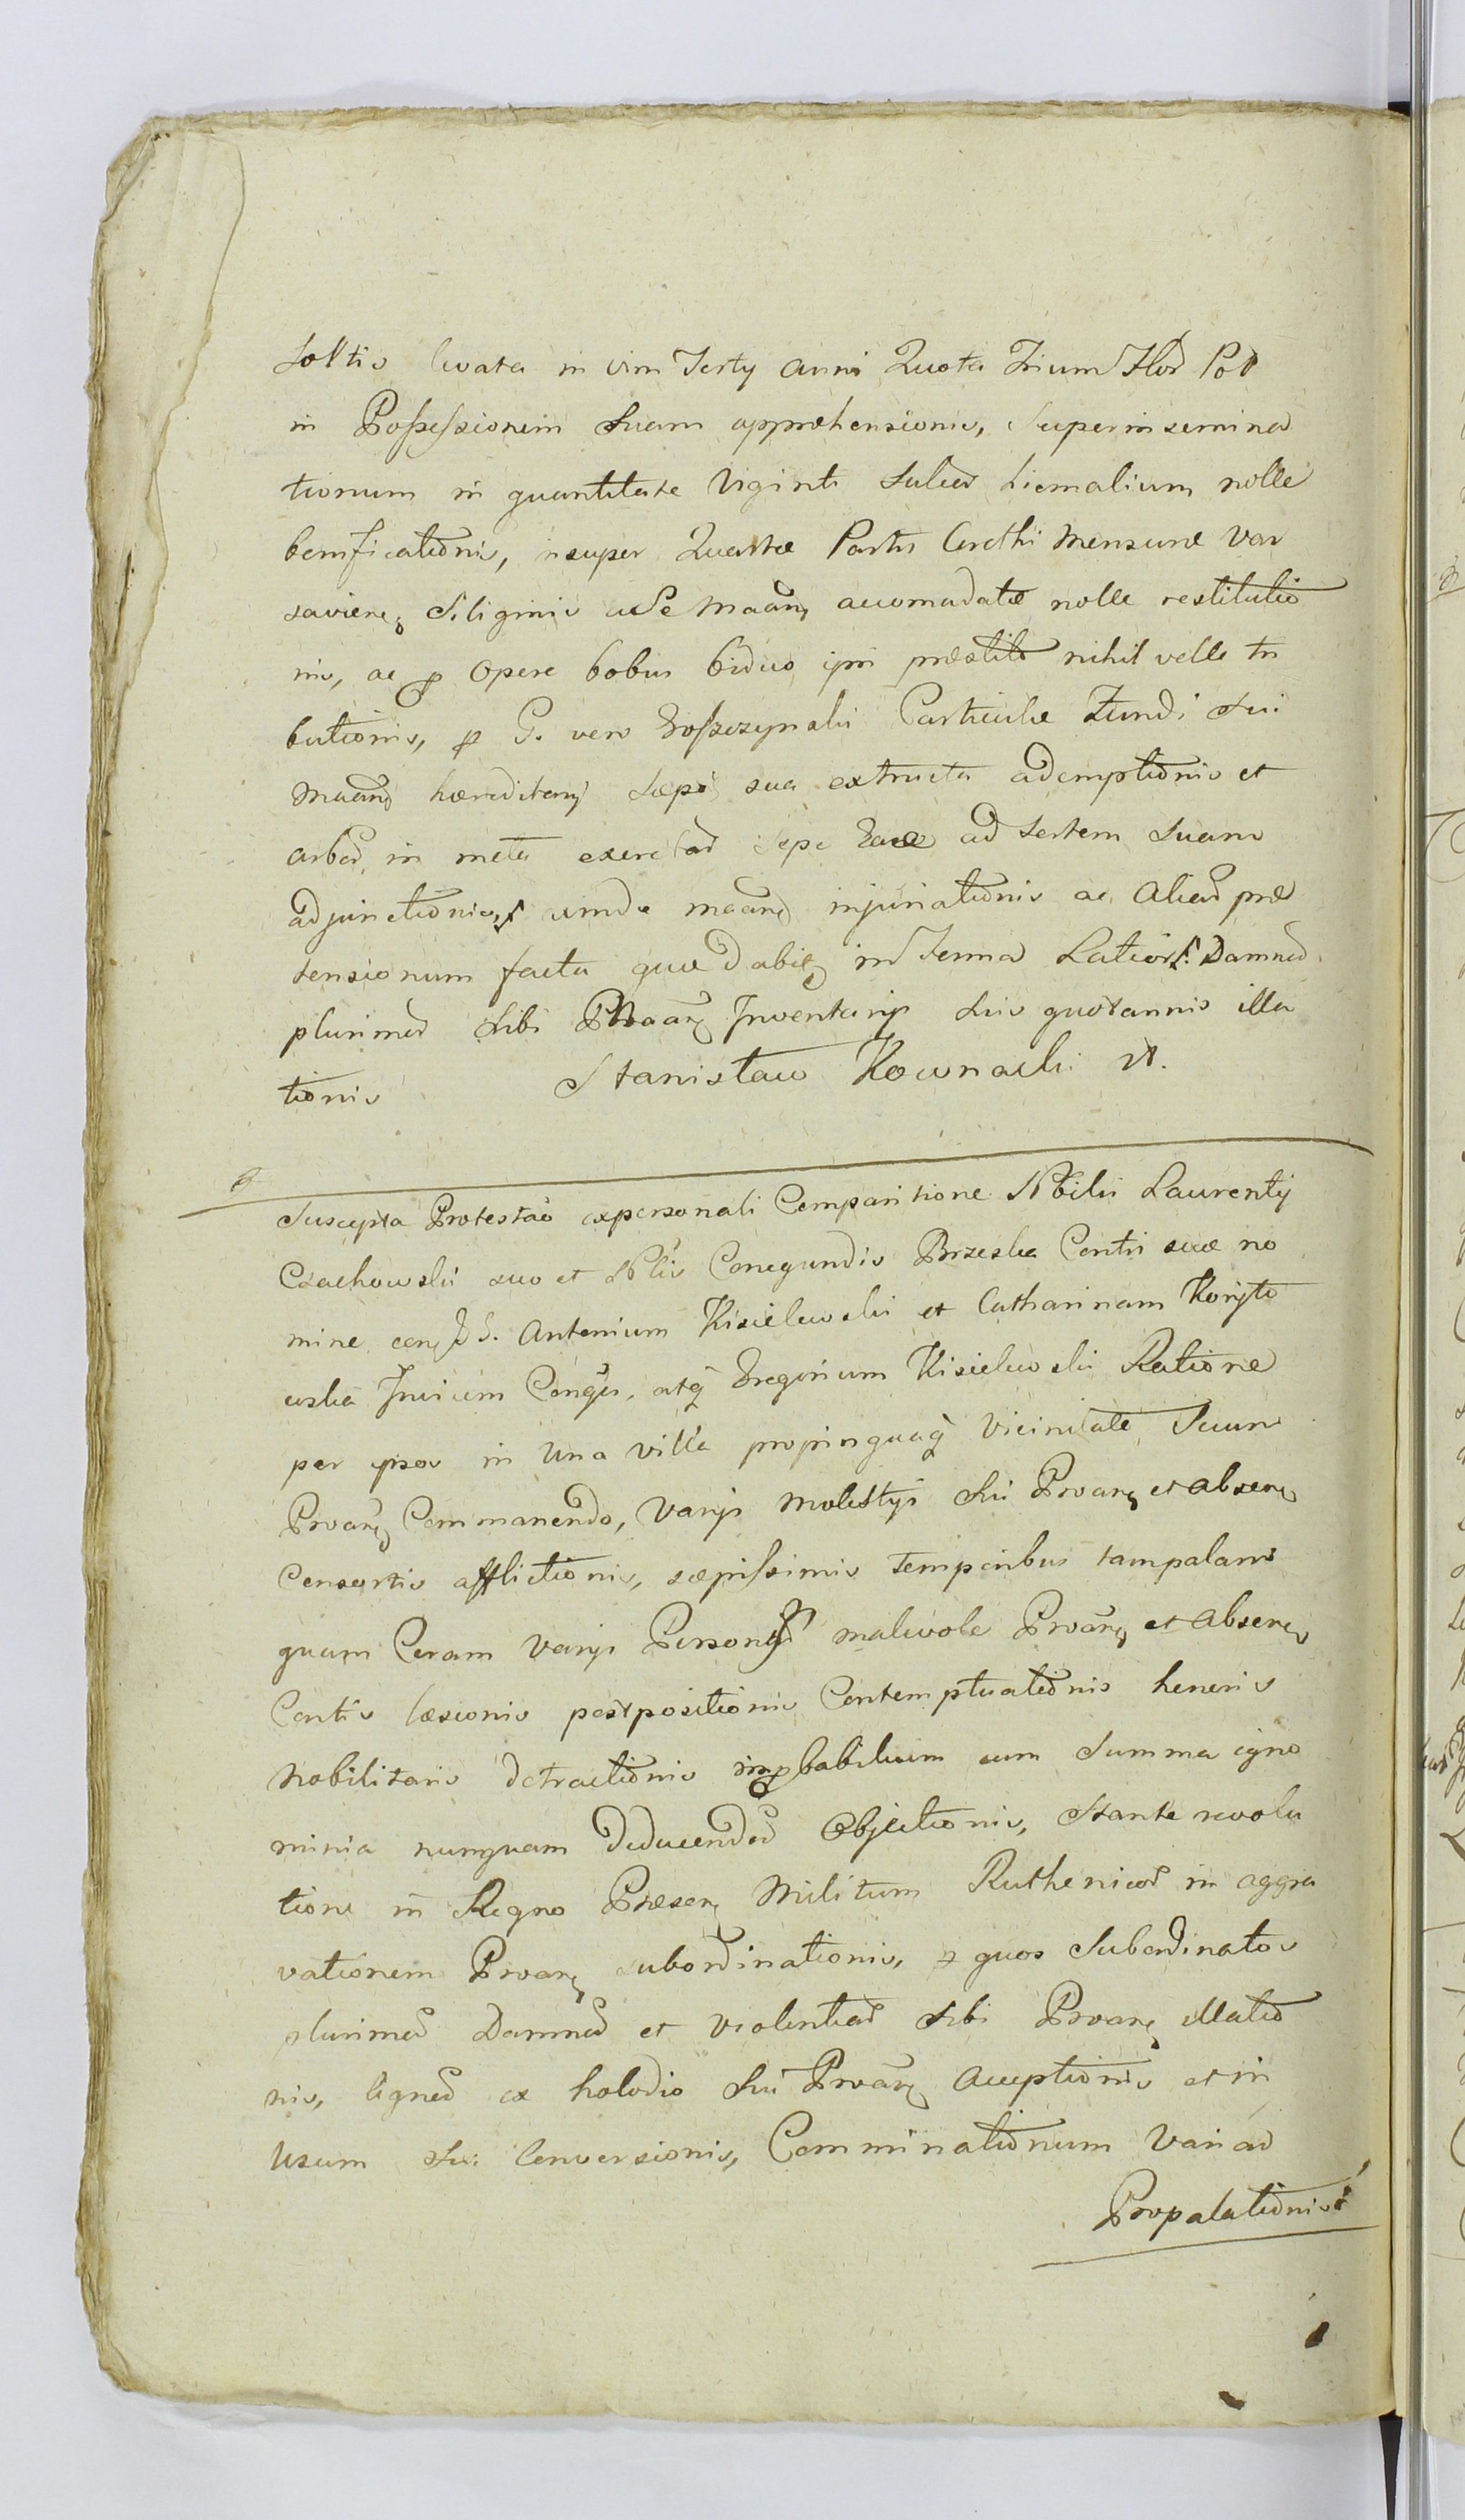 levata in vim Tertÿ anni Quota Trium Flor Pol
in Possessionem Suam appræhensionis, Superinsemina
tionum in quantitate Viginti Sulcor hiemalium nolle
bonificationis, insuper Quartæ Partis Corethi Mensuræ Var
savien Siliginis a Se accomodatæ nolle restitutio
nis, ac p opere bobus biduo ipsi præstito nihil velle tri
butionis, p G. vero Particulæ Fundi Sui
hæreditarÿ sæpe sua extructa ademptionis et
arbor in meta ad Sortem Suam
adjunctionis, injuriationis ac aliar præ
tensionum facta in Termino Latior. Damnor
plurimor Sibi Inventarÿs Suis quotannis illa
tionis Stanisław Kownacki
Suscepta Protestao ex personali Comparitione Nobilis Laurentÿ
Czachowski suo et Nblis Conegundis Brzeska Contis suæ no
mine con G. Antonium Kisielewski et Catharinam Koryto
wska Invicem Conges, atq Gregorium Kisielewski Ratione
per ipsos in Una villa propinquaq Vicinitate Secum
Proan Commanendo, Varÿs Molestÿs Sui Proan et absen
Consortis afflictionis, sæpissimis temporibus tam palam
quam Coram Varÿs Personis malevole Proan et absen
Contis læsionis postpositionis Contemptuationis honoris
Nobilitaris detractionis improbabilium cum Summa igno
minia nunquam deducendor Objectionis, Stante revolu
tione in Regno Præsen Militum Ruthenicor in aggra
vationem Proan subordinationis, p quos Subordinatos
plurimor Damnor et violentiar Sibi Proan illatio
nis, lignor ex holodio Sui Proan acceptionis et in
Usum Sui Conversionis, Comminationum Variar
Propalationis